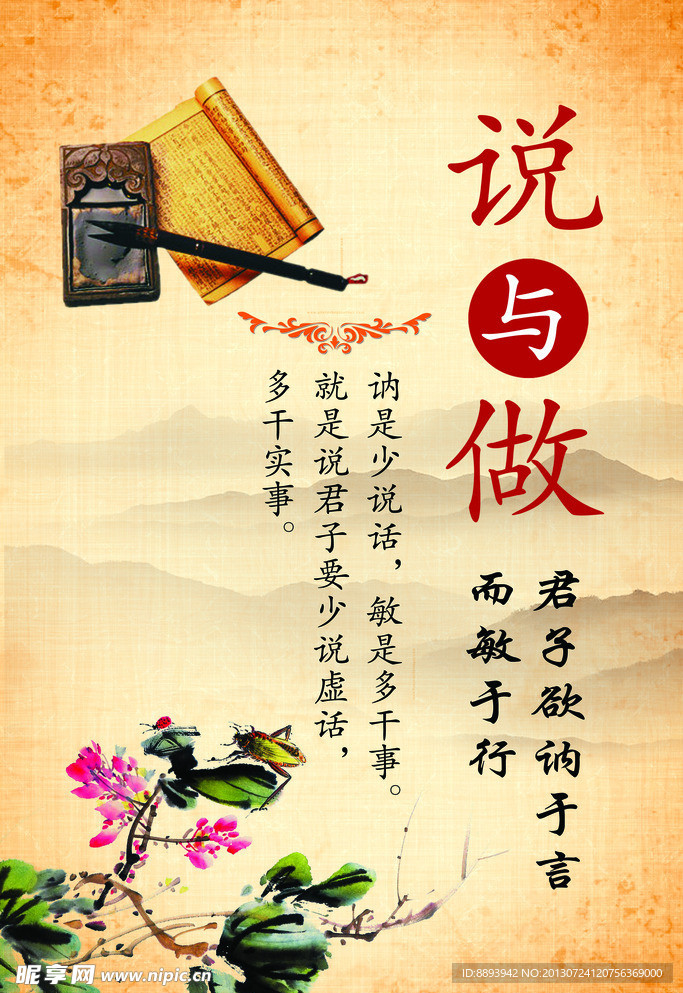 说
与
做
君子欲讷于言
而敏于行
讷是少说话，敏是多干事。
就是说君子要少说虚话，
多干实事。
昵享网 www.nipic.cn
ID:8893942 NO:20130724120756369000